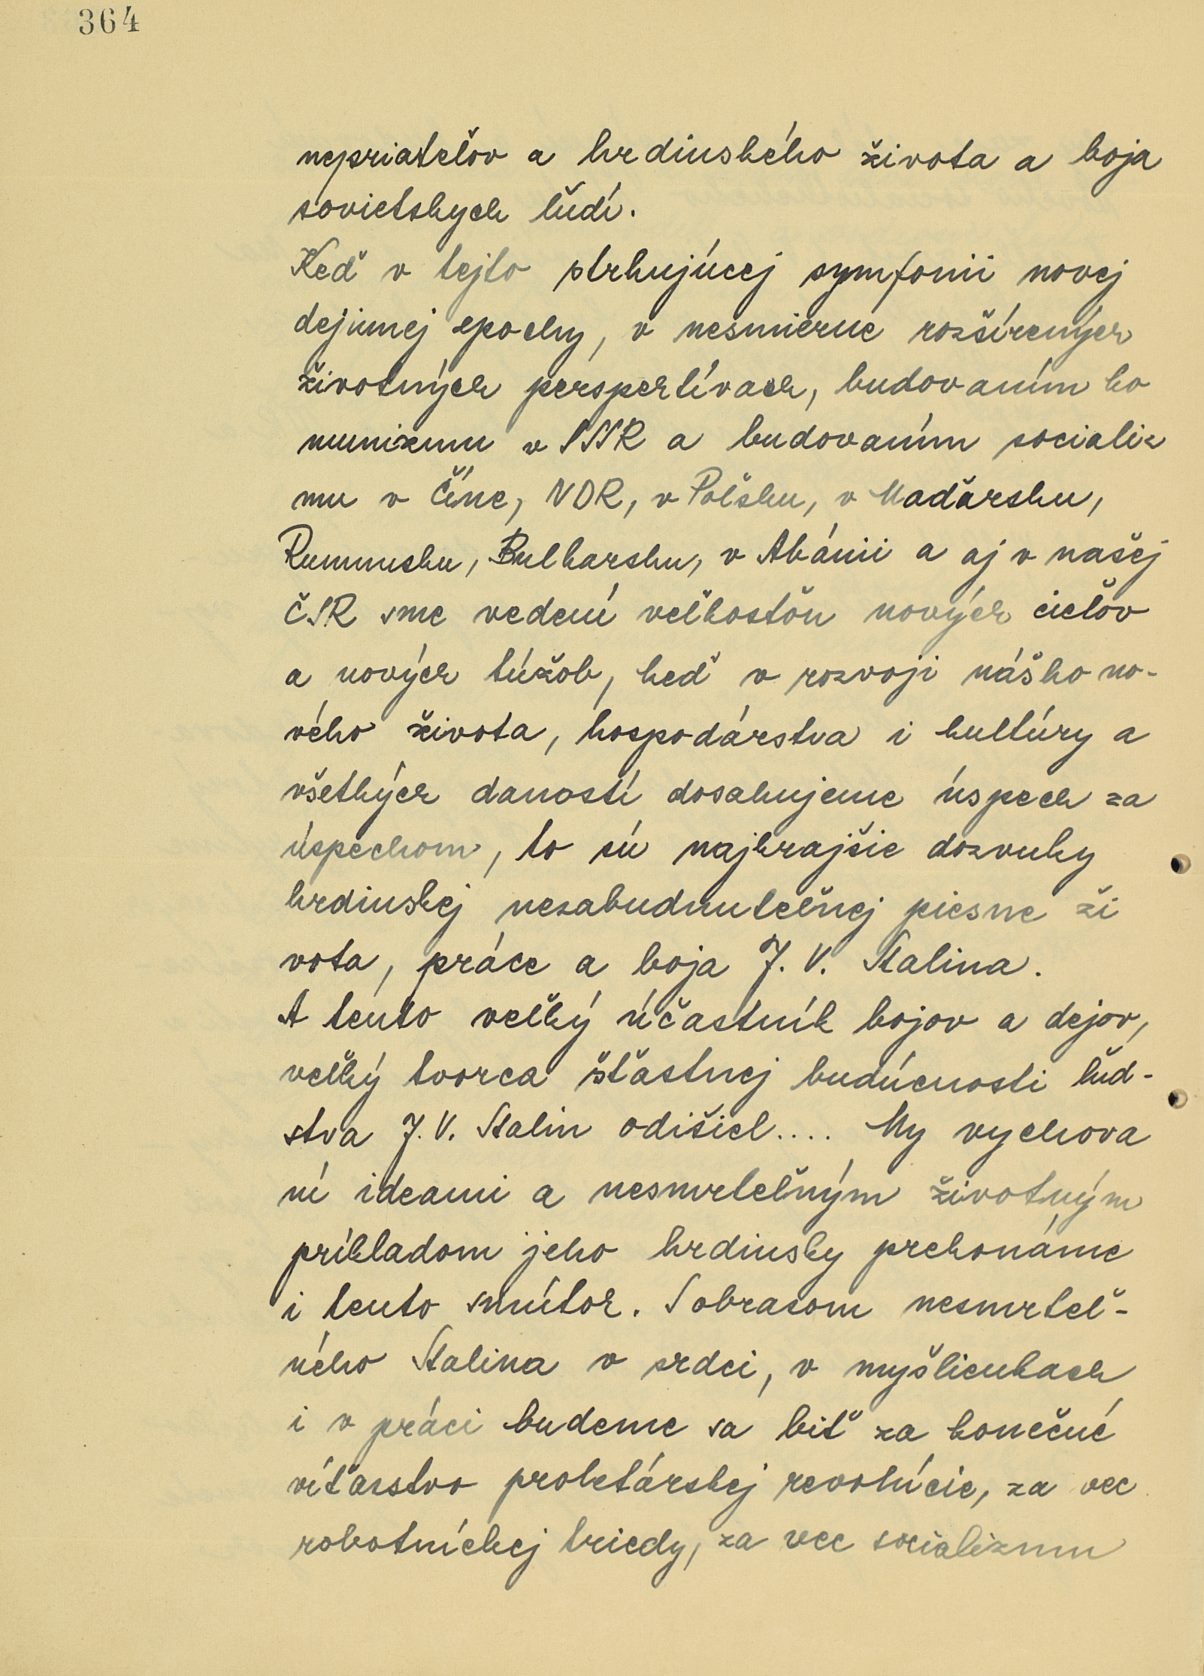 364
nepriateľov a hrdinského života a boja
sovietskych ľudí.
Keď v tejto strhujúcej symfonii novej
dejinnej epochy, v nesmierne rozšírených
životných perspektívach, budovaním ko
munizmu v SSSR a budovaním socializ
mu v Číne, NDR, v Poľsku, v Maďarsku,
Rumunsku, Bulharsku, v Abánii a aj v našej
ČSR sme vedení veľkosťou nových cieľov
a nových túžob, keď v rozvoji nášho no-
vého života, hospodárstva i kultúry a
všetkých daností dosahujeme úspech za
úspechom, to sú najkrajšie dozvuky
hrdinskej nezabudnuteľnej piesne ži
vota, práce a boja J. V. Stalina.
A tento veľký účastník bojov a dejov,
veľký tvorca šťastnej budúcnosti ľud-
stva J. V. Stalin odišiel.... My vychova
ní ideami a nesmrteľným životným
príkladom jeho hrdinsky prekonáme
i tento smútok. S obrazom nesmrteľ-
ného Stalina v srdci, v myšlienkach
i v práci budeme sa biť za konečné
víťazstvo proletárskej revolúcie, za vec
robotníckej triedy, za vec socializmu